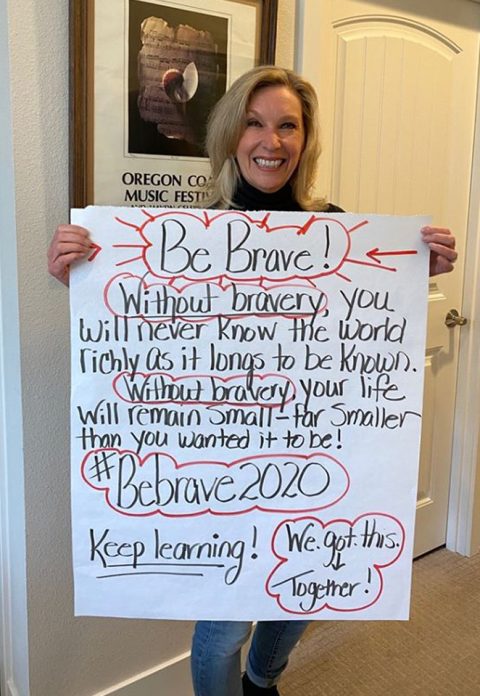 OREGON CO
MUSIC FESTI
Be Brave!
Without bravery, you
will never know the world
richly as it longs to be known.
Without bravery, your life
will remain small - far smaller
than you wanted it to be!
#Bebrave2020
Keep learning!
We.got.this.
Together!